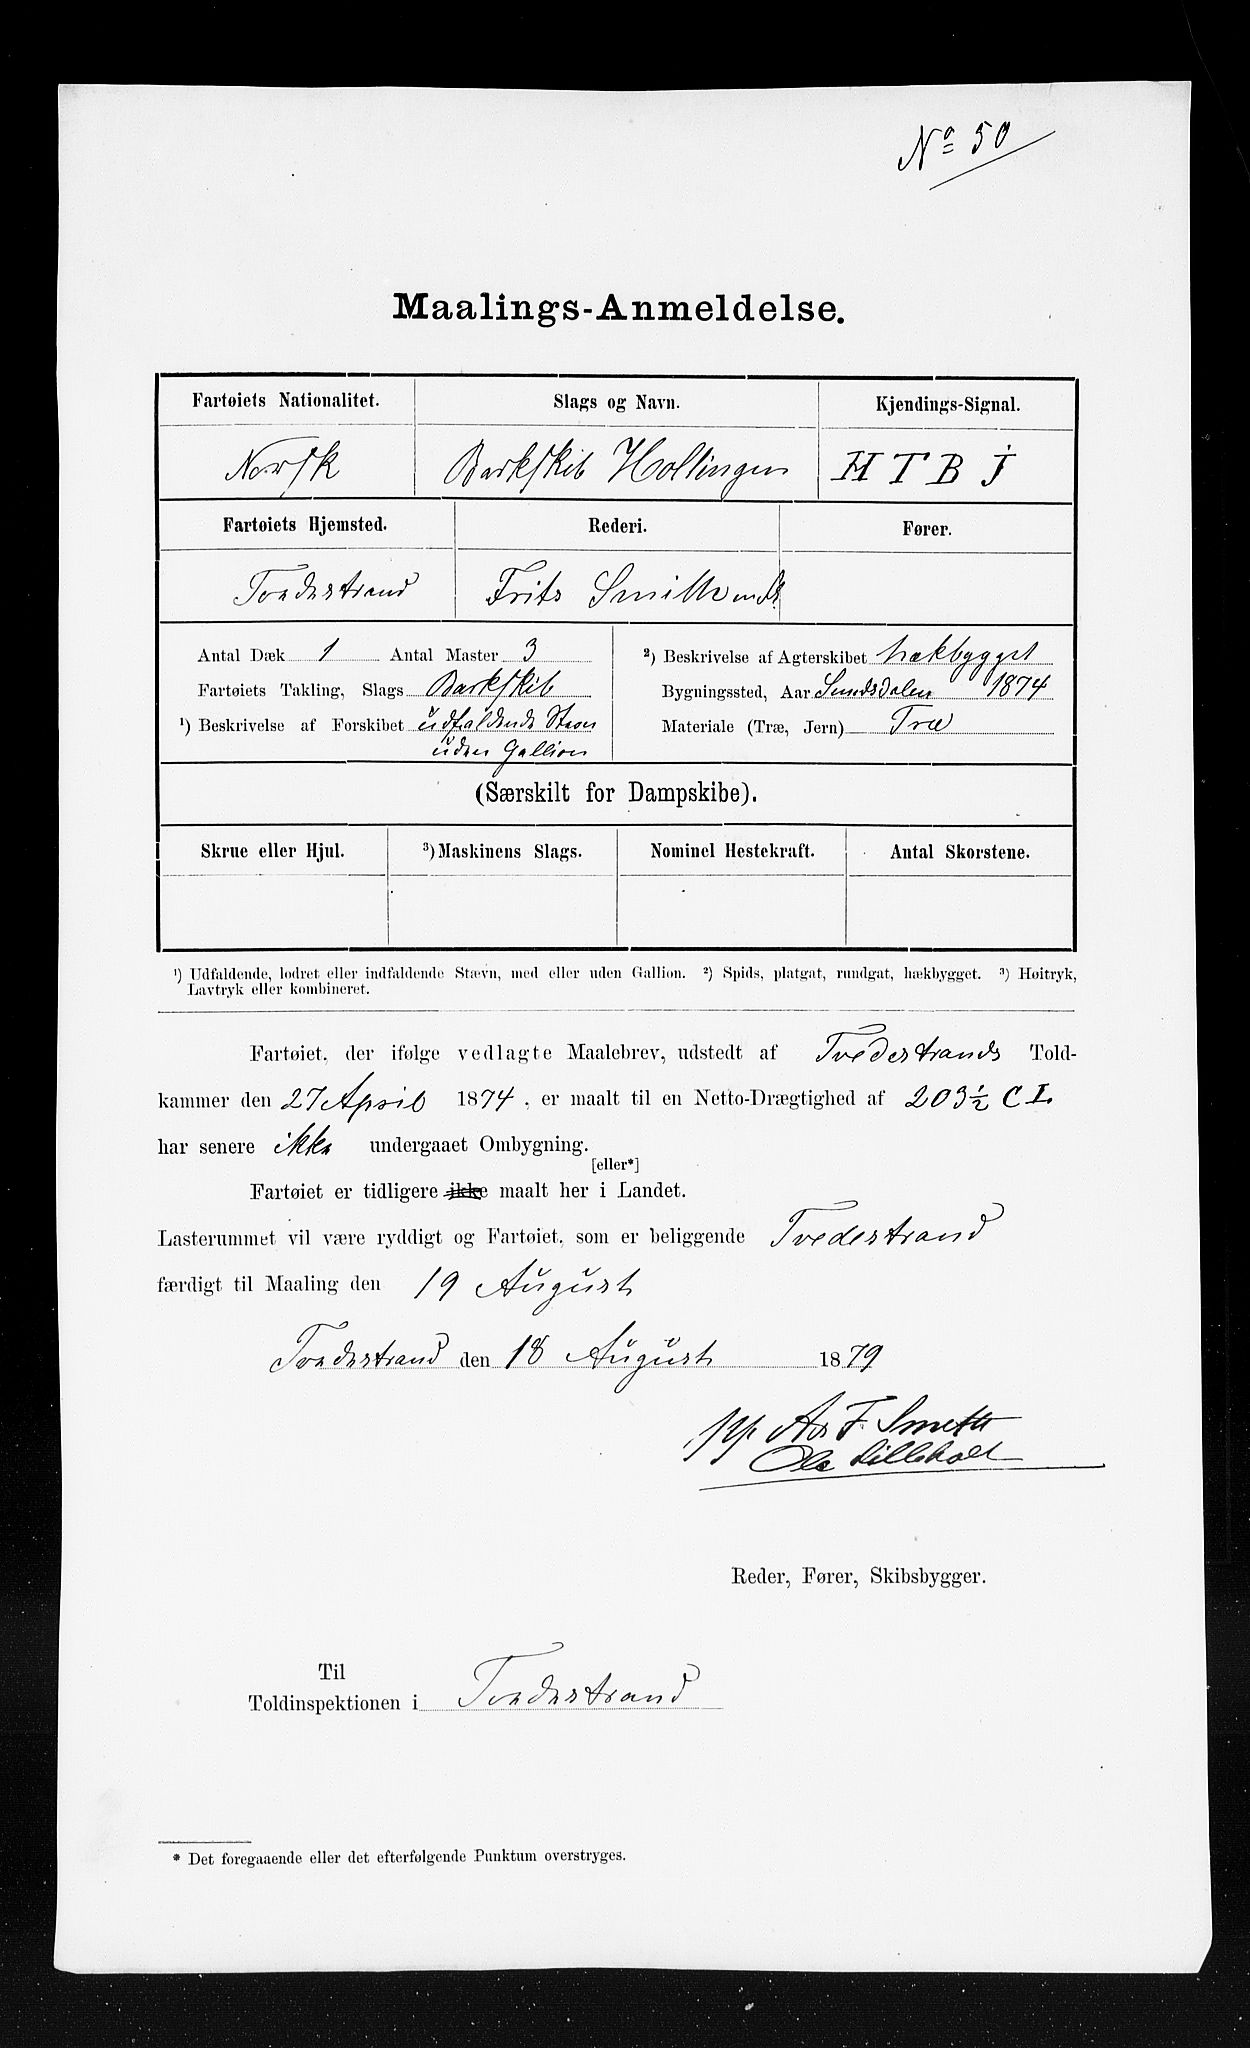 No 50
Maalings-Anmeldelse.
Fartøiets Nationalitet. Slags og Navn. Kjendings-Signal.
Norsk Barkskib Hollingen H T B J
Fartøiets Hjemsted. Rederi. Fører.
Tvedestrand Frits Smith
Antal Dæk 1 Antal Master 3
Fartøiets Takling, Slags Barkskib
¹) Beskrivelse af Forskibet udfaldende Stævn
uden Gallion
²) Beskrivelse af Agterskibet hækbygget
Bygningssted, Aar Sundsdalen 1874
Materiale (Træ, Jern) Træ
(Særskilt for Dampskibe).
Skrue eller Hjul. ³) Maskinens Slags. Nominel Hestekraft. Antal Skorstene.
¹) Udfaldende, lodret eller indfaldende Stævn, med eller uden Gallion. ²) Spids, platgat, rundgat, hækbygget. ³) Høitryk,
Lavtryk eller kombineret.
Fartøiet, der ifølge vedlagte Maalebrev, udstedt af Tvedestrands Told-
kammer den 27 April 1874, er maalt til en Netto-Drægtighed af 203½ C L.
har senere ikke undergaaet Ombygning.
[eller*]
Fartøiet er tidligere ikke maalt her i Landet.
Lasterummet vil være ryddigt og Fartøiet, som er beliggende Tvedestrand
færdigt til Maaling den 19 August
Tvedestrand den 18 August 1879
pp. F. Smith
Ole Lilleholt
Reder, Fører, Skibsbygger.
Til
Toldinspektionen i Tvedestrand
* Det foregaaende eller det efterfølgende Punktum overstryges.